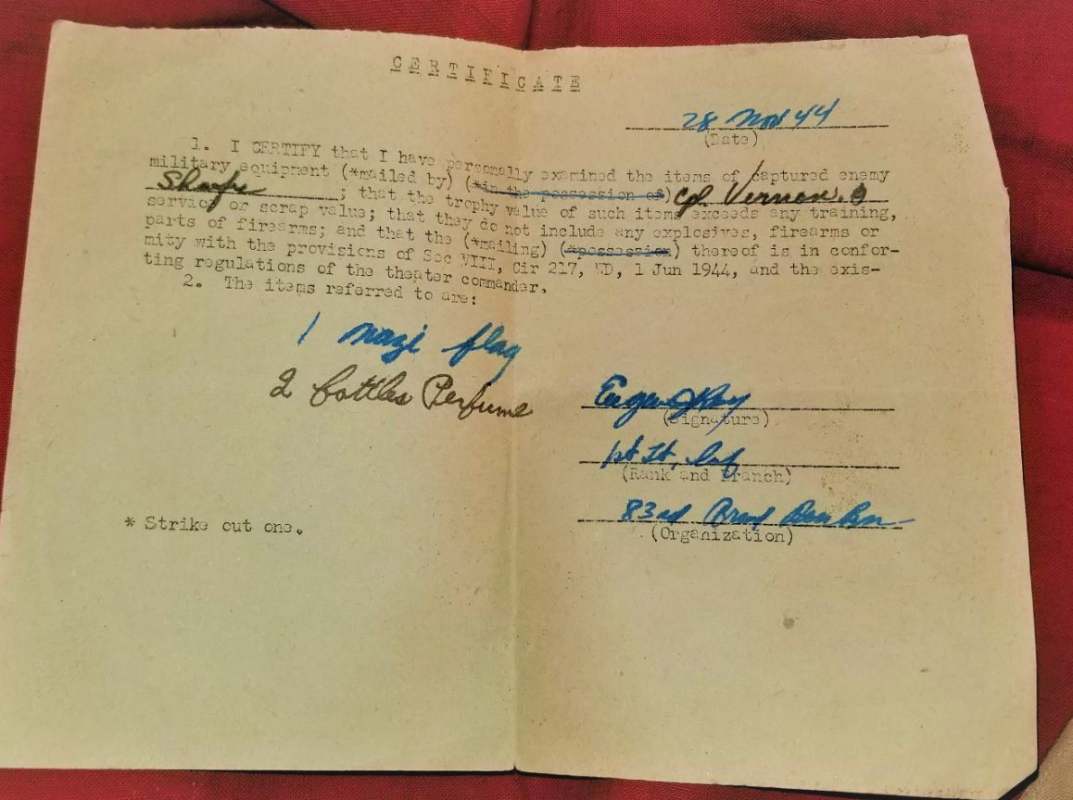 CERTIFICATE
28 Nov 44
(Date)
1. I CERTIFY that I have personally examined the items of captured enemy
military equipment (*mailed by) (*in the possession of) Cpl. Vernon. O
Sharpe ; that the trophy value of such items exceeds any training,
service or scrap value; that they do not include any explosives, firearms or
parts of firearms; and that the (*mailing) (*possession) thereof is in confor-
mity with the provisions of Sec VIII, Cir 217, WD, 1 Jun 1944, and the exis-
ting regulations of the theater commander.
2. The items referred to are:
1 Nazi flag
2 bottles Perfume
Eugene
(Signature)
1st Lt, Inf
(Rank and Branch)
83rd Armd Rcn Bn
(Organization)
* Strike out one.